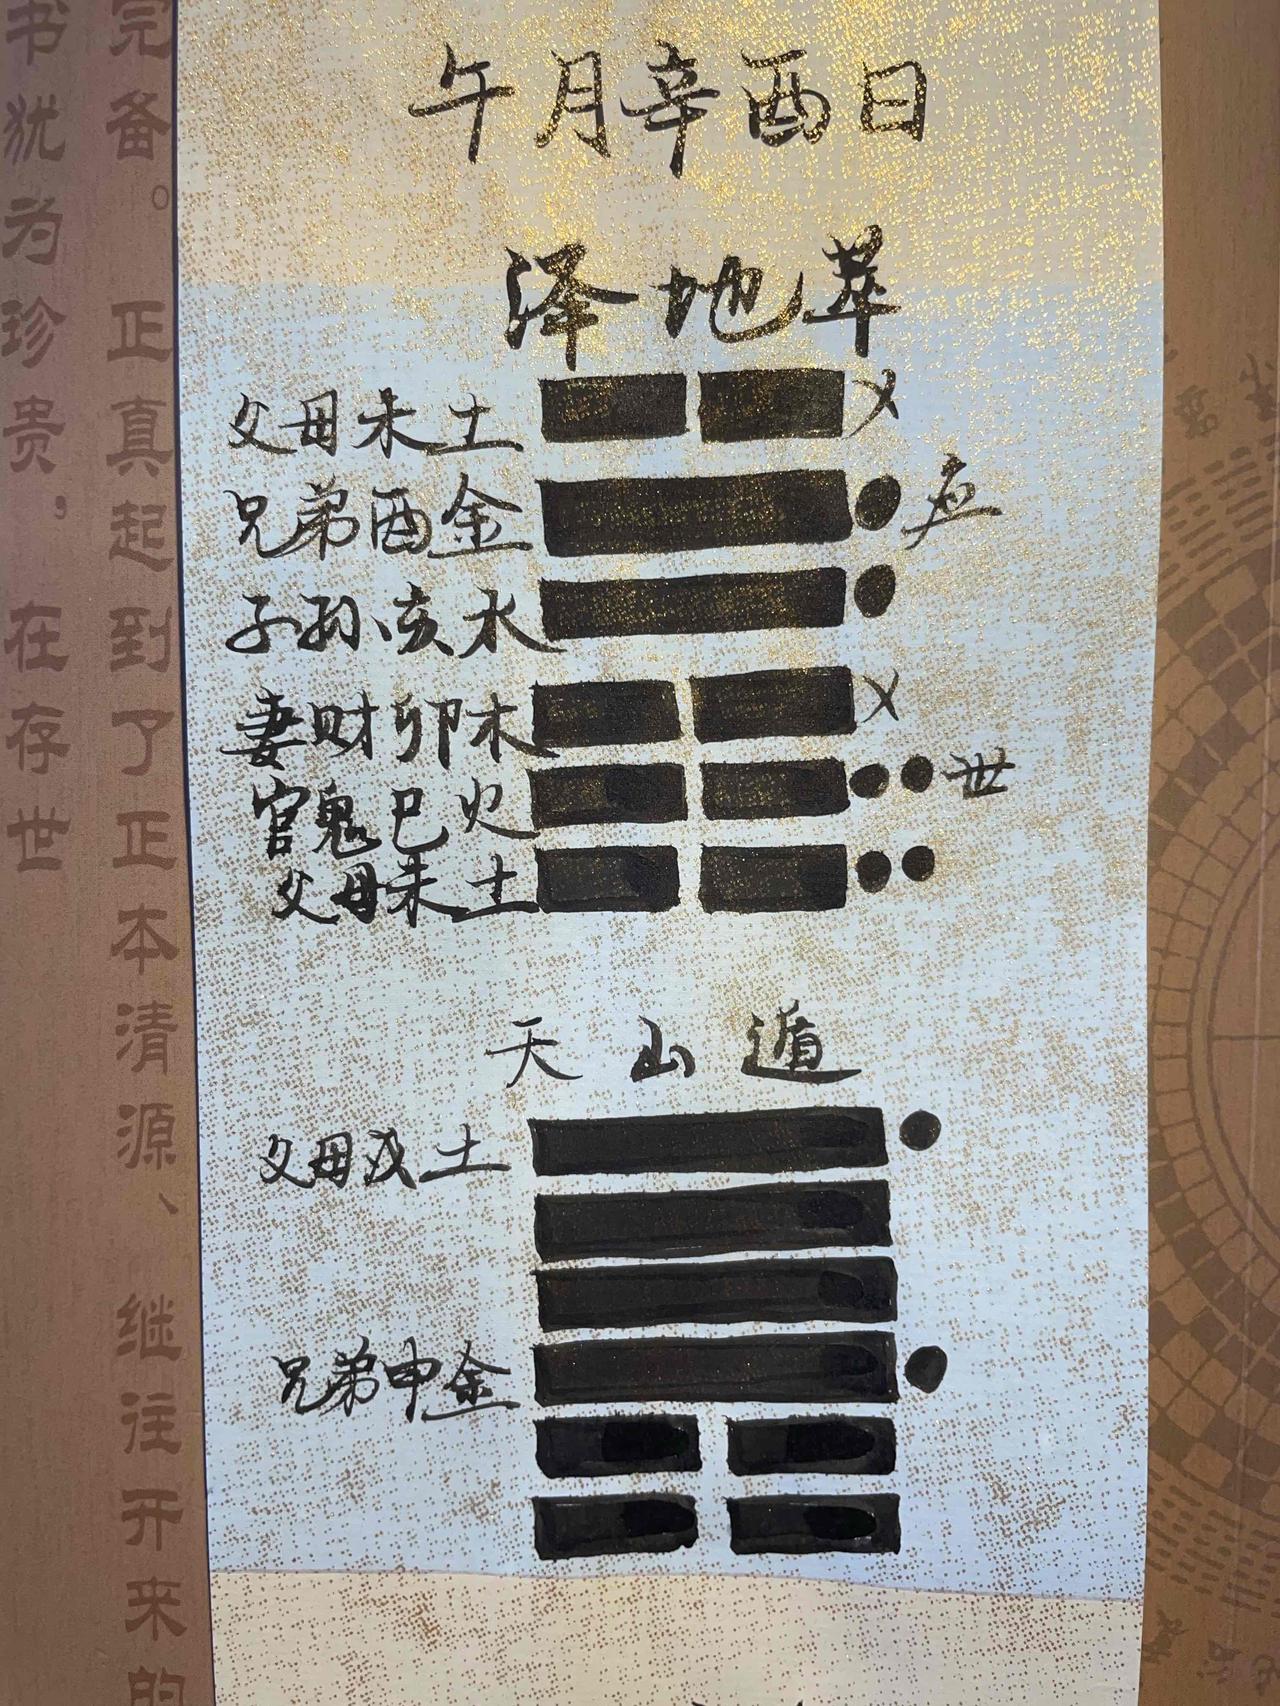 午月辛酉日
泽地萃
父母未土 X
兄弟酉金 应
子孙亥水
妻财卯木 X
官鬼巳火 世
父母未土
天山遁
父母戌土
兄弟申金
完备。正真起到了正本清源、继往开来的
书犹为珍贵，在存世